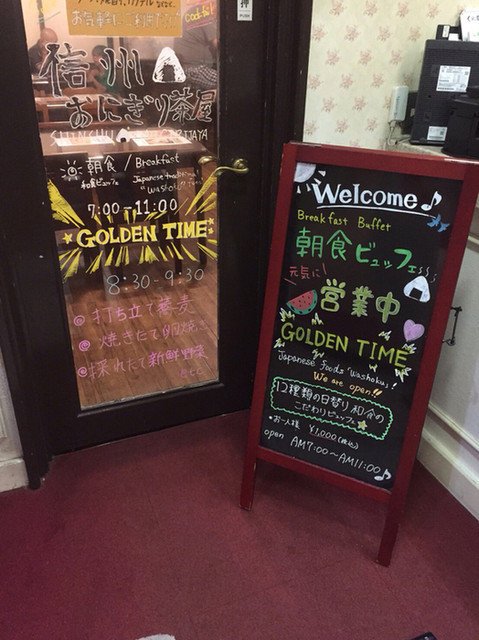 お気軽にご利用下さい
信州
おにぎり茶屋
朝食 / Breakfast
和食ビュッフェ
Japanese
"Washoku"
7:00-11:00
GOLDEN TIME
8:30-9:30
◎打ち立て蕎麦
◎焼きたて卵焼
◎採れたて新鮮野菜
etc
押
Welcome♪
Breakfast Buffet
朝食ビュッフェ
元気に!
営業中
GOLDEN TIME
Japanese foods "Washoku"!
We are open!!
12種類の日替り和食の
こだわりビュッフェ
*お一人様 ¥1,000(税込)
open AM7:00~AM11:00♪